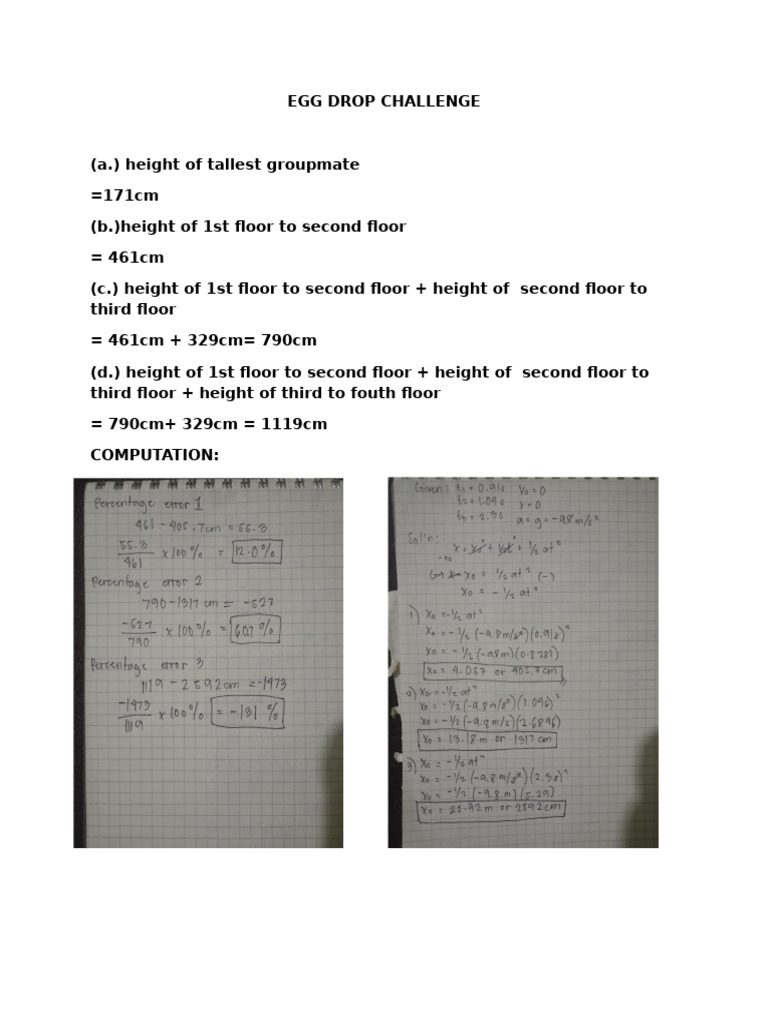 EGG DROP CHALLENGE
(a.) height of tallest groupmate
=171cm
(b.)height of 1st floor to second floor
= 461cm
(c.) height of 1st floor to second floor + height of  second floor to
third floor
= 461cm + 329cm= 790cm
(d.) height of 1st floor to second floor + height of  second floor to
third floor + height of third to fouth floor
= 790cm+ 329cm = 1119cm
COMPUTATION:
Percentage error 1
461 - 405.7cm = 55.3
55.3/461 x 100% = 12.0%
Percentage error 2
790 - 1317 cm = -527
-527/790 x 100% =
Percentage error 3
1119 - 2592cm = -1473
-1473/1119 x 100% = -131 %
Given: t₁ = 0.91s V₀ = 0
x = 0
t₃ = 2.3s a = g = -9.8 m/s²
Sol'n:
x = x₀ + v₀t + 1/2 at²
x₀ = 1/2 at² (-)
x₀ = - 1/2 at²
1) x₀ = -1/2 at²
x₀ = -1/2 (-9.8 m/s²)(0.91s)²
x₀ = -1/2 (-9.8m)(0.8281)
x₀ = 4.057 or 405.7cm
2) x₀ = -1/2 at²
x₀ = -1/2 (-9.8 m/s²)
x₀ = -1/2 (-9.8 m/s)(2.6896)
x₀ = 13.18 m or 1317 cm
3) x₀ = -1/2 at²
x₀ = -1/2 (-9.8 m/s²)(2.3s)²
x₀ = -1/2 (-9.8 m)(5.29)
x₀ = 25.92 m or 2592cm